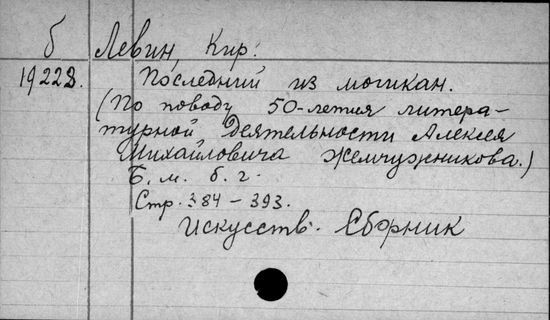 б Левин Кир.
19228. Последний из могикан.
(По поводу 50-летия литера-
турной деятельности Алексея
Михайловича Жемчужникова.)
Б. м. б. г.
Стр. 384-393.
Искусств. Сборник